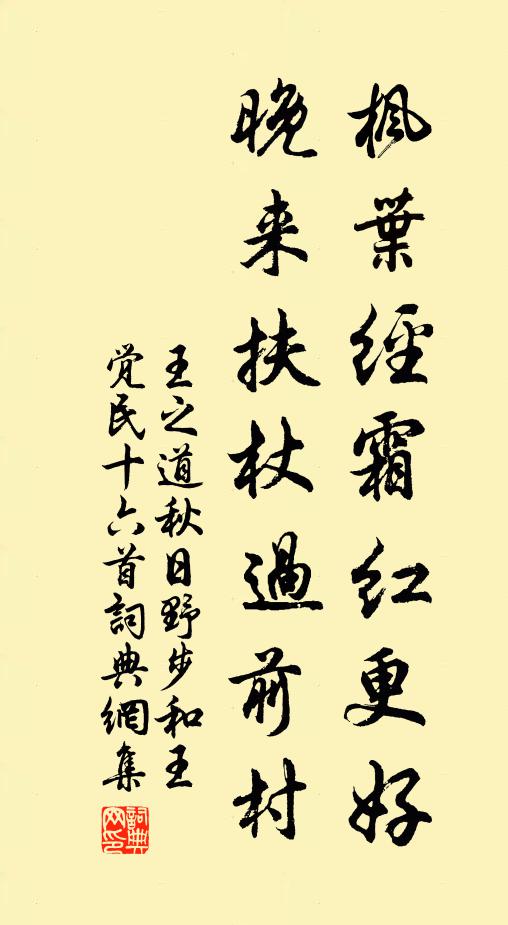 枫葉經霜紅更好
晚来扶杖過前村
王之道秋日野步和王
觉民十六首詞典網集
詞典
网印